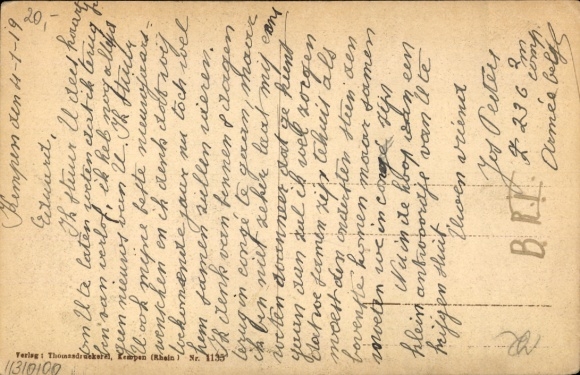 20.-
Kempen den 4-1-19
Eduard,
Ik stuur U deze kaart
om U te laten weten dat ik terug
ben van verlof, ik heb nog altijd
geen nieuws van U. Ik stuur
U ook mijne beste nieuwjaars-
wenschen en ik denk dat wij
toekomende jaar nu toch wel
samen zullen vieren.
Ik denk van binnen dagen
terug in congé te gaan, maar
ik ben niet zeker laat mij eens
weten wanneer dat ge kunt
gaan dan zal ik wel zorgen
dat we samen zijn al
moest den ondersten steen den
bovenste komen maar samen
moeten we in congé zijn
Nu in de hoop van een
klein antwoordje van U te
krijgen sluit
Uwen vriend
Jos Peeters
Z 236 2m
comp.
Armée belge
Verlag: Thomasdruckerei, Kempen (Rhein) Nr. 1135
113/01/00